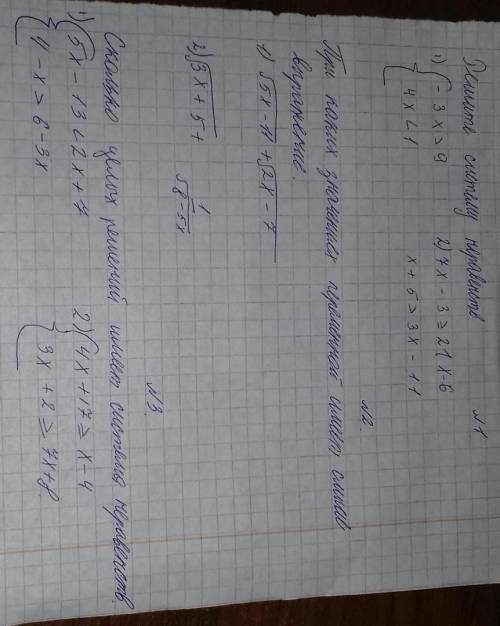 №1
Решить систему неравенств
1) { -3x > 9
4x < 1
2) 7x - 3 ≥ 21x - 6
x + 5 > 3x - 11
№2
При каких значениях переменной имеет смысл
выражение.
1) √5x - 11 + √2x - 7
2) √3x + 5 + 1/√8 - 5x
№3.
Сколько целых решений имеет система неравенств
1) { 5x - 13 < 2x + 7
4 - x > 6 - 3x
2) { 4x + 17 ≥ x - 4
3x + 2 ≥ 7x + 8.